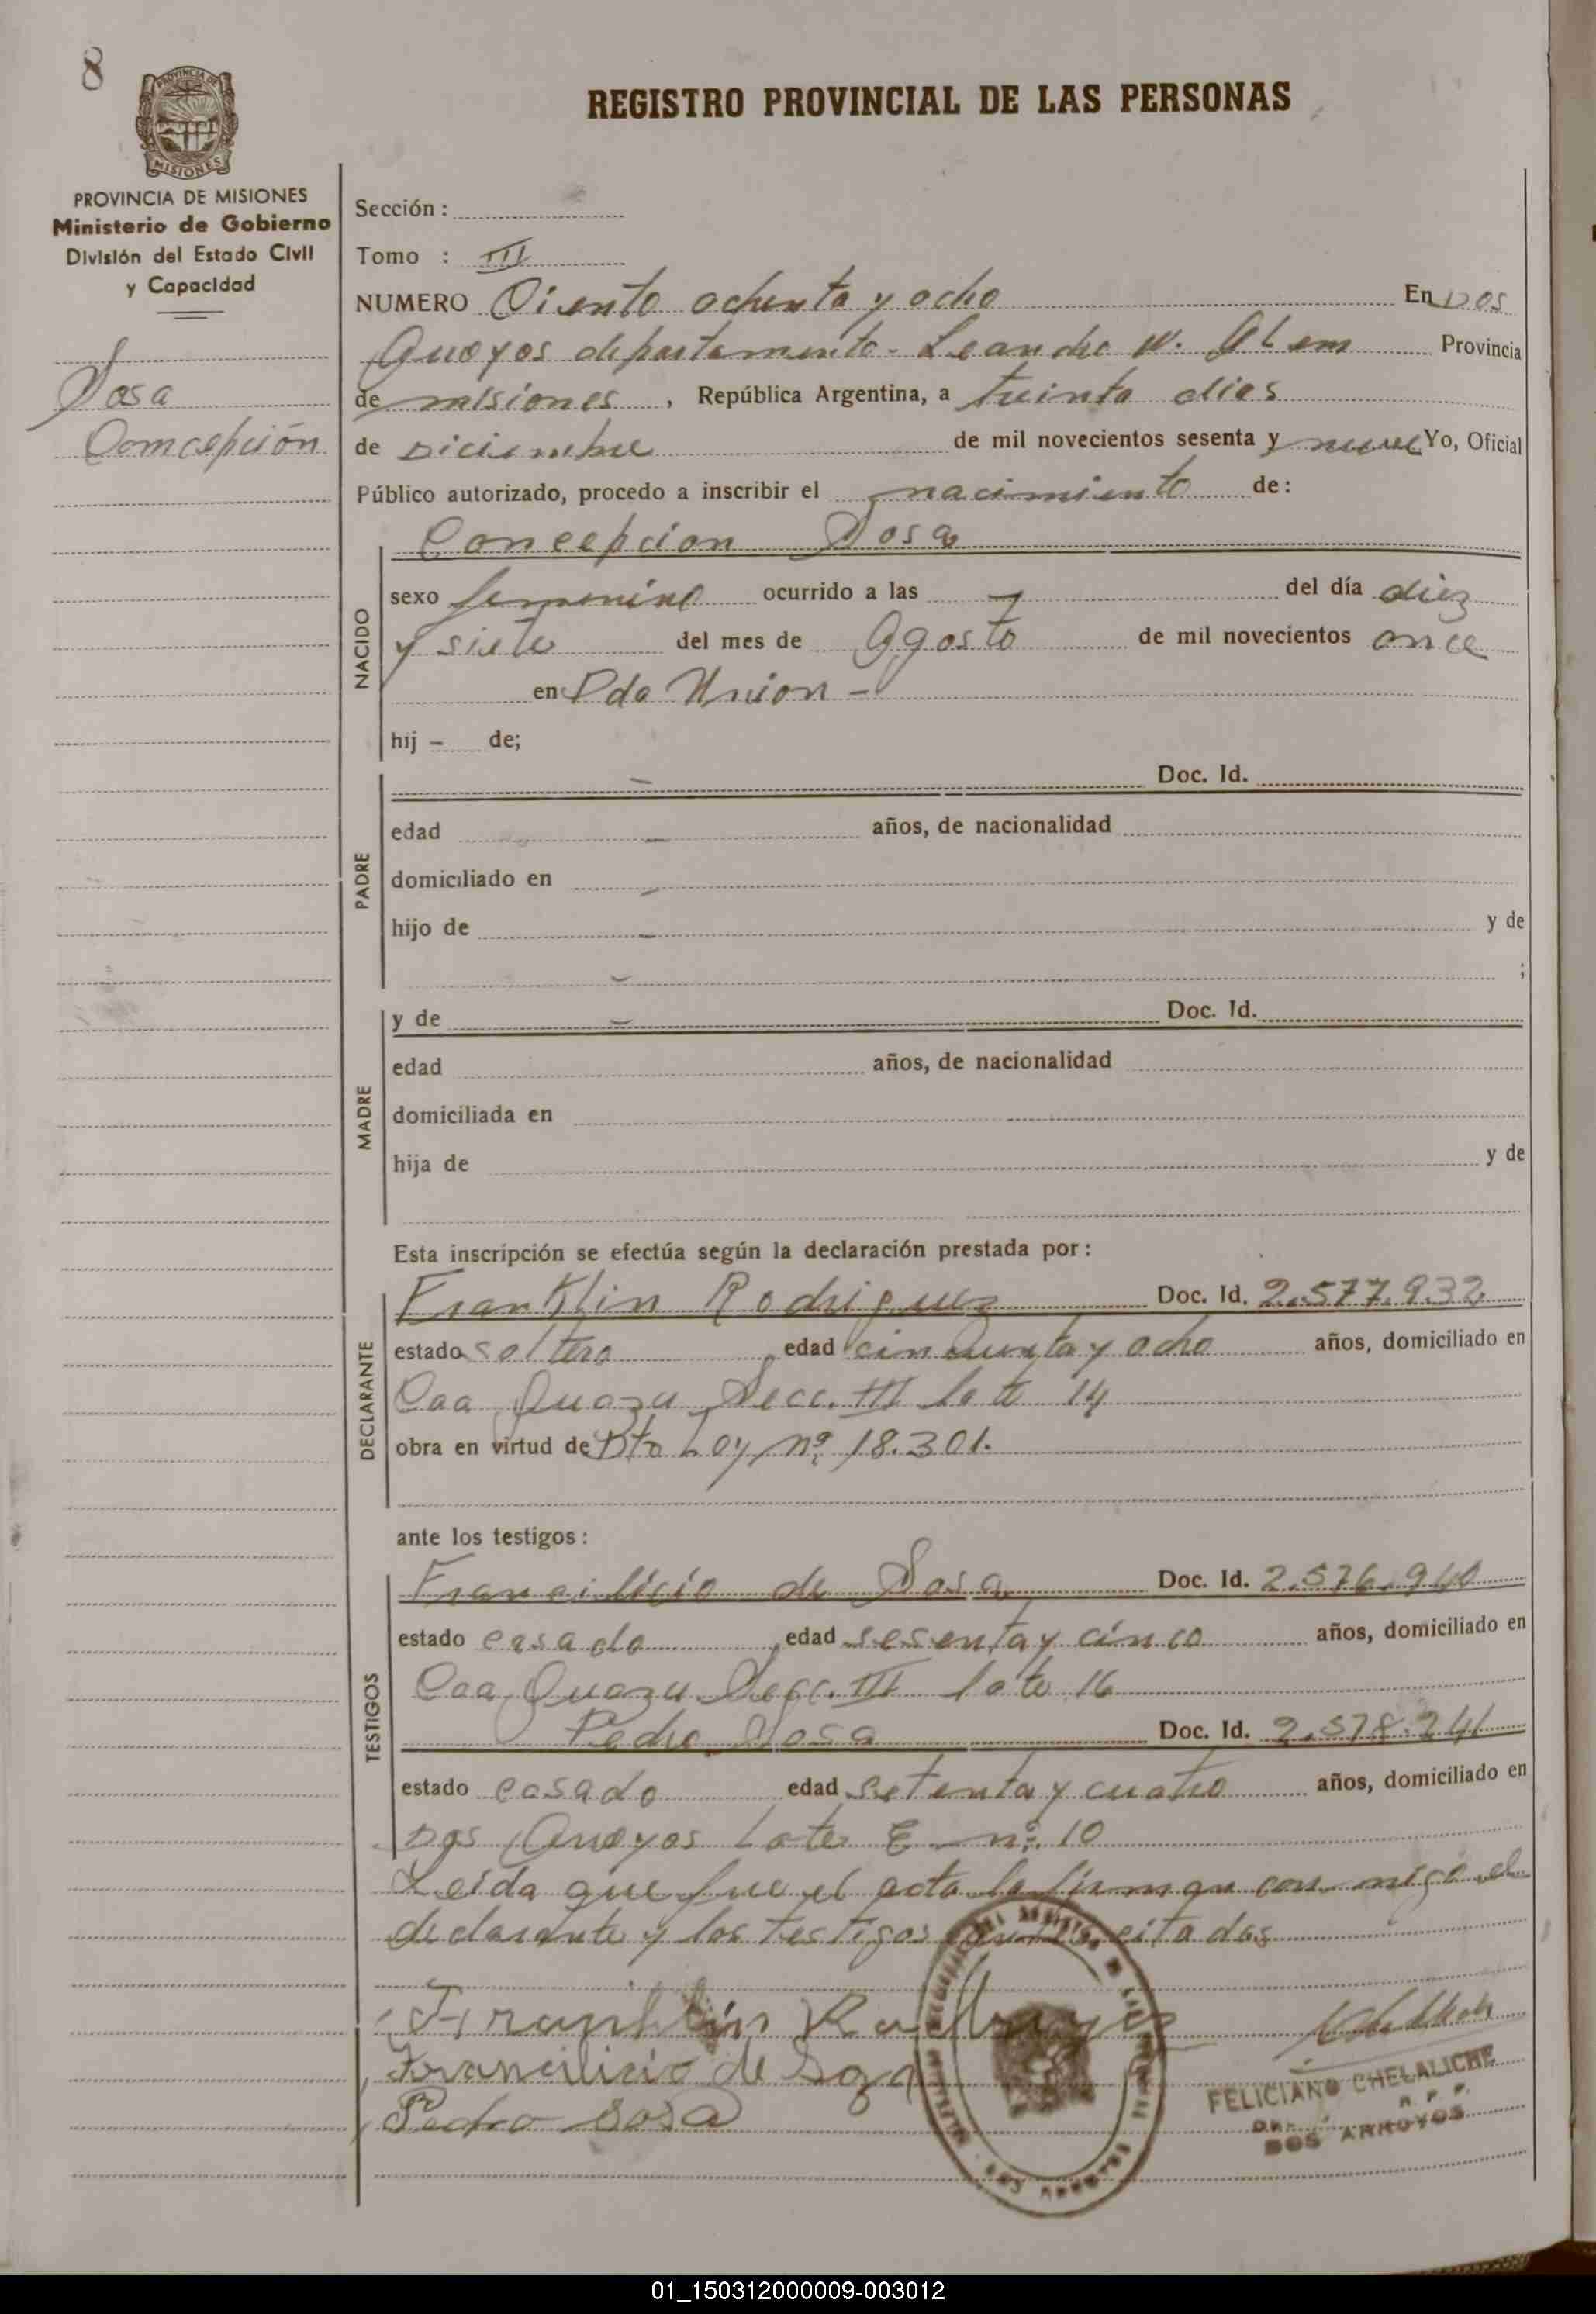 8
PROVINCIA DE MISIONES
PROVINCIA DE MISIONES
Ministerio de Gobierno
División del Estado Civil
y Capacidad
Sosa
Comcepción
REGISTRO PROVINCIAL DE LAS PERSONAS
Sección :
Tomo : III
NUMERO Ciento ochenta y ocho En Dos
Arroyos departamento - Leandro N. Alem Provincia
de misiones , República Argentina, a treinta dias
de Diciembre de mil novecientos sesenta y nueve Yo, Oficial
Público autorizado, procedo a inscribir el nacimiento de:
NACIDO
Concepcion Sosa
sexo femenino ocurrido a las — del día diez
y siete del mes de Agosto de mil novecientos once
en Pda Union -
hij - de;
PADRE
- Doc. Id.
edad - años, de nacionalidad
domiciliado en -
hijo de - y de
- ;
MADRE
y de - Doc. Id.
edad años, de nacionalidad
domiciliada en
hija de y de
Esta inscripción se efectúa según la declaración prestada por :
DECLARANTE
Franklin Rodriguez Doc. Id. 2.577.932
estado soltero, edad cincuenta y ocho años, domiciliado en
Caa Guazu Secc. III lote 14
obra en virtud de Dto Ley nº 18.301.
ante los testigos :
TESTIGOS
Francilicio de Sosa Doc. Id. 2.576.940
estado casado, edad sesenta y cinco años, domiciliado en
Caa Guazu Secc. III lote 16
Pedro Sosa Doc. Id. 2.578.241
estado casado edad setenta y cuatro años, domiciliado en
Dos Arroyos Lote E nº 10
Leida que fue el acta la firman con migo el
declarante y los testigos citados
Franklin
Francilicio de Sosa
Pedro Sosa
FELICIANO CHELALICHE
R. P. P.
DOS ARROYOS
01_150312000009-003012